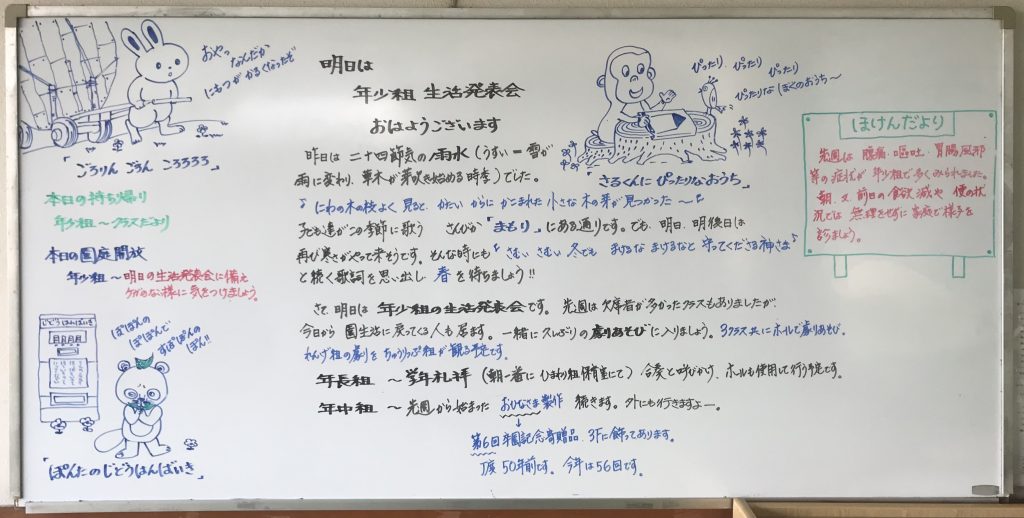 おやっ
なんだか
にもつが かるくなったぞ
「ごろりん ごろん ころろろろ」
本日の持ち帰り
年少組 〜 クラスだより
本日の園庭開放
年少組 〜 明日の生活発表会に備え
ケガのない様に気をつけましょう。
じどうはんばいき
ぽぽんの
ぽぽんで
すぽぽんの
ぽん!!
「ぽんたのじどうはんばいき」
明日は
年少組 生活発表会
おはようございます
昨日は 二十四節気の 雨水 (うすい = 雪が
雨に変わり、草木が芽吹き始める時季) でした。
「にわの木の枝よく見ると、かたい からに かこまれた 小さな 木の芽が 見つかった〜」
子ども達がこの季節に歌う さんびか 「まもり」 にある通りです。でも、明日、明後日は
再び寒さがやって来そうです。そんな時にも 「さむい さむい 冬でも まけるな まけるなと 守ってくださる神さま」
と続く歌詞を思い出し 春 を待ちましょう!!
さて、明日は 年少組の生活発表会です。先週は欠席者が多かったクラスもありましたが
今日から 園生活に戻ってくる人も居ます。一緒に久しぶりの劇あそびに入りましょう。3クラス共にホールで劇あそび。
れんげ組の劇りを ちゅうりっぷ組が観る予定です。
年長組 〜 学年礼拝 (朝一番に ひまわり組保育室にて) 合奏と呼びかけ、ホールも使用して行う予定です。
年中組 〜 先週から始まった おひなさま製作 続きます。外にも行きますよー。
第6回卒園記念寄贈品、3Fに飾ってあります。
丁度 50年前です。今年は56回です。
ぴったり、ぴったり、
ぴったり
ぴったりな ぼくのおうち〜
「さるくんにぴったりなおうち」
ほけんだより
先週は 腹痛・嘔吐・胃腸風邪
等の症状が 年少組で多くみられました。
朝、又、前日の食欲減や 便の状
況では 無理をせずに 家庭で様子を
診ましょう。